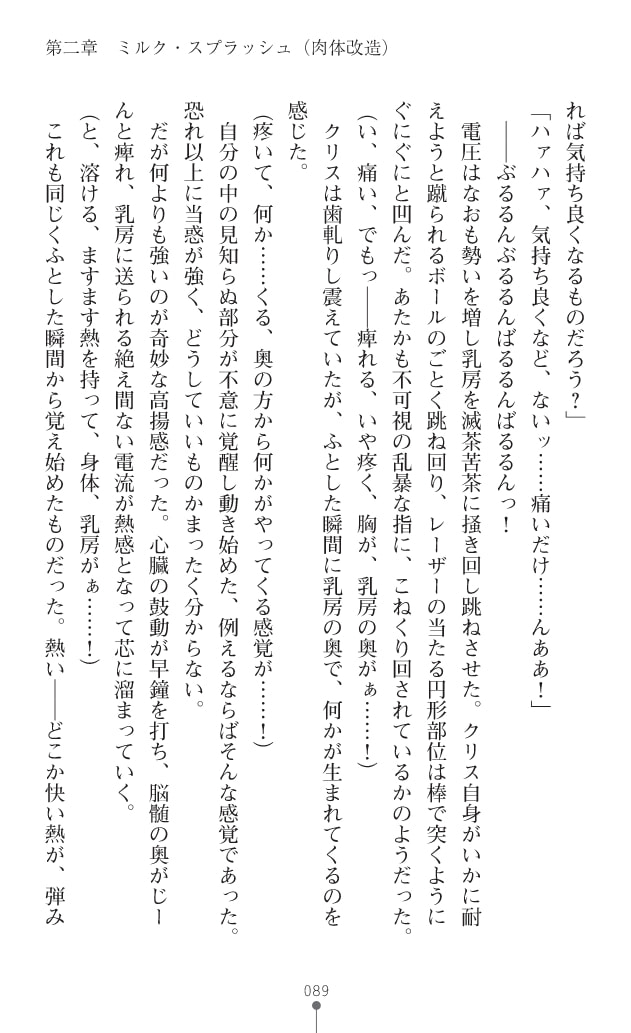 第二章　ミルク・スプラッシュ（肉体改造）
れば気持ち良くなるものだろう？」
「ハァハァ、気持ち良くなど、ないッ……痛いだけ……んああ！」
――ぶるるんぶるるんばるるんばるるんっ！
電圧はなおも勢いを増し乳房を滅茶苦茶に掻き回し跳ねさせた。クリス自身がいかに耐
えようと蹴られるボールのごとく跳ね回り、レーザーの当たる円形部位は棒で突くように
ぐにぐにと凹んだ。あたかも不可視の乱暴な指に、こねくり回されているかのようだった。
（い、痛い、でもっ――痺れる、いや疼く、胸が、乳房の奥がぁ……！）
クリスは歯軋りし震えていたが、ふとした瞬間に乳房の奥で、何かが生まれてくるのを
感じた。
（疼いて、何か……くる、奥の方から何かがやってくる感覚が……！）
自分の中の見知らぬ部分が不意に覚醒し動き始めた、例えるならばそんな感覚であった。
恐れ以上に当惑が強く、どうしていいものかまったく分からない。
だが何よりも強いのが奇妙な高揚感だった。心臓の鼓動が早鐘を打ち、脳髄の奥がじー
んと痺れ、乳房に送られる絶え間ない電流が熱感となって芯に溜まっていく。
（と、溶ける、ますます熱を持って、身体、乳房がぁ……！）
これも同じくふとした瞬間から覚え始めたものだった。熱い――どこか快い熱が、弾み
089